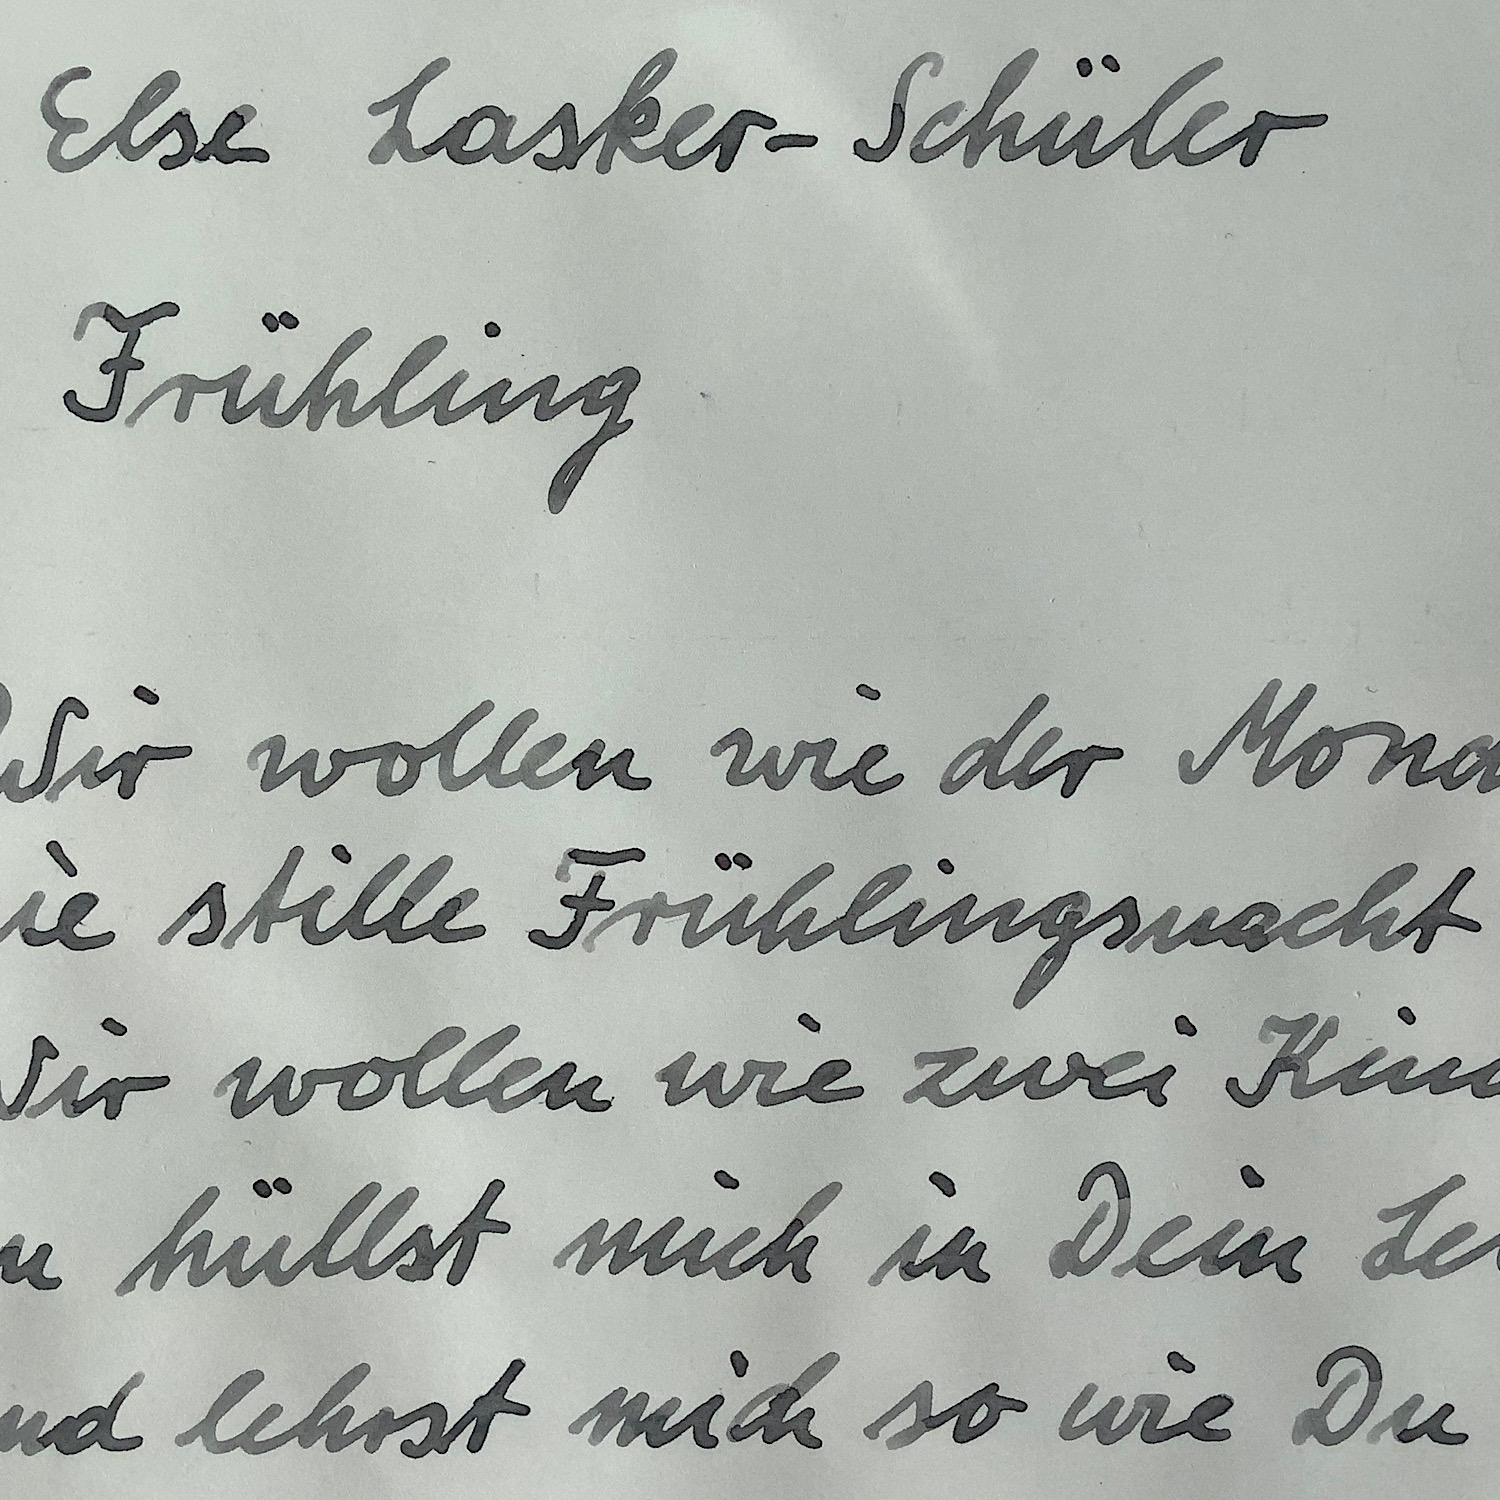 Else Lasker-Schüler
Frühling
Wir wollen wie der Mond
ie stille Frühlingsnacht
Wir wollen wie zwei Kind
u hüllst mich in Dein Le
nd lehrst mich so wie Du